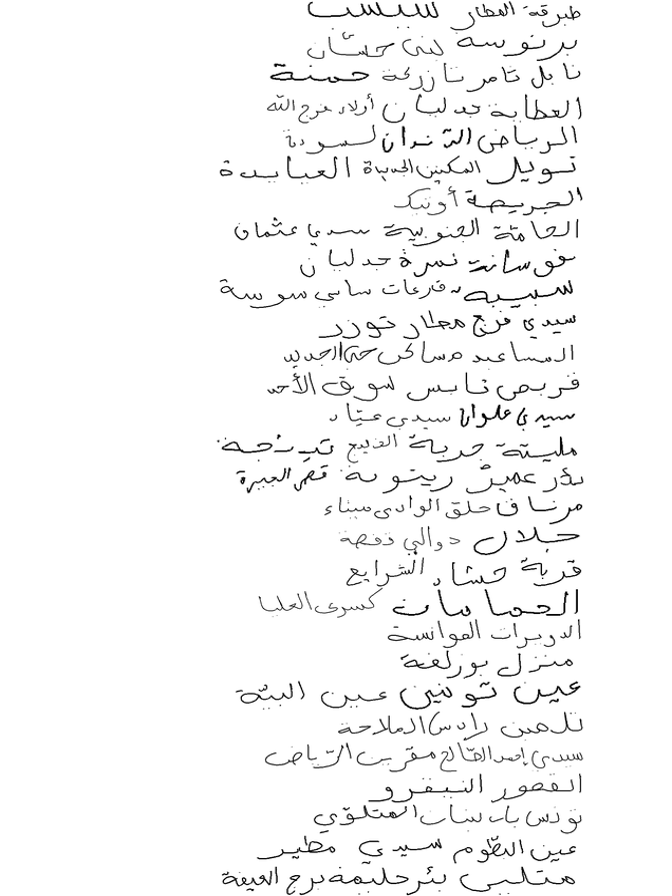 طبرقة المطار سبيبة
برنوسة لبنى حشان
نابل تامر تازركة حمنة
العطاية جدليان أولاد فرج الله
الرياض الشندان لسودة
تويل المكنين الجديدة العبايدة
الجريصة أونيك
الحامة الجنوبية سيدي عثمان
فوسانة نمرة جدليان
سبيبة قرعات ساسي سوسة
سيدي فرج مطار توزر
المساعيد مساكن حي الجديد
قربص نابس سوق الأحد
سيدي علوان سيدي عياد
مليتة جربة الفليج
بئر عمير زيتونة قصر العبيرة
مرناق حلق الوادي ميناء
جلال دوالي قفصة
قرية حشاد الشرايع
الحمامات كسرى العليا
الدويرات العوانسة
منزل بوزلفة
عين تونين عين البية
تلمين رادس الملاحة
سيدي إحمد الصالح مقرين الرياض
القصور النيفرو
تونس باب بنات المتلوي
عين البطوم سيدي مطير
متليني بئر حليمة برج العيفة